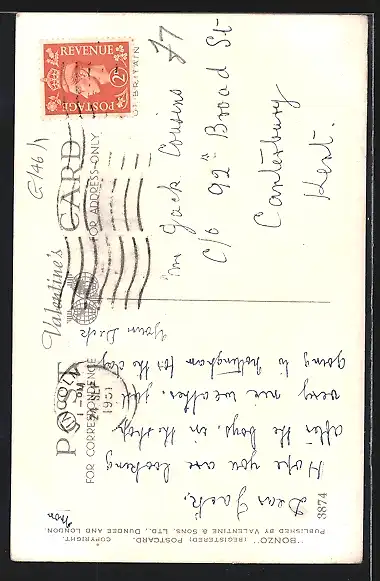 "BONZO" (REGISTERED) POSTCARD. COPYRIGHT.
PUBLISHED BY VALENTINE & SONS, LTD., DUNDEE AND LONDON.
3874
Valentine's
POST CARD
FOR CORRESPONDENCE
FOR ADDRESS ONLY
POSTAGE
REVENUE
2D
BRITAIN
LINCOLN
1- PM
SEP
1951
G/46 h
77
Mon
Dear Jack,
Hope you are looking
after the boys, in the shop
very nice weather,
going to Nottingham for the day
Your Dick
Mr Jack Cousins
C/o 92A Broad St
Canterbury
Kent.